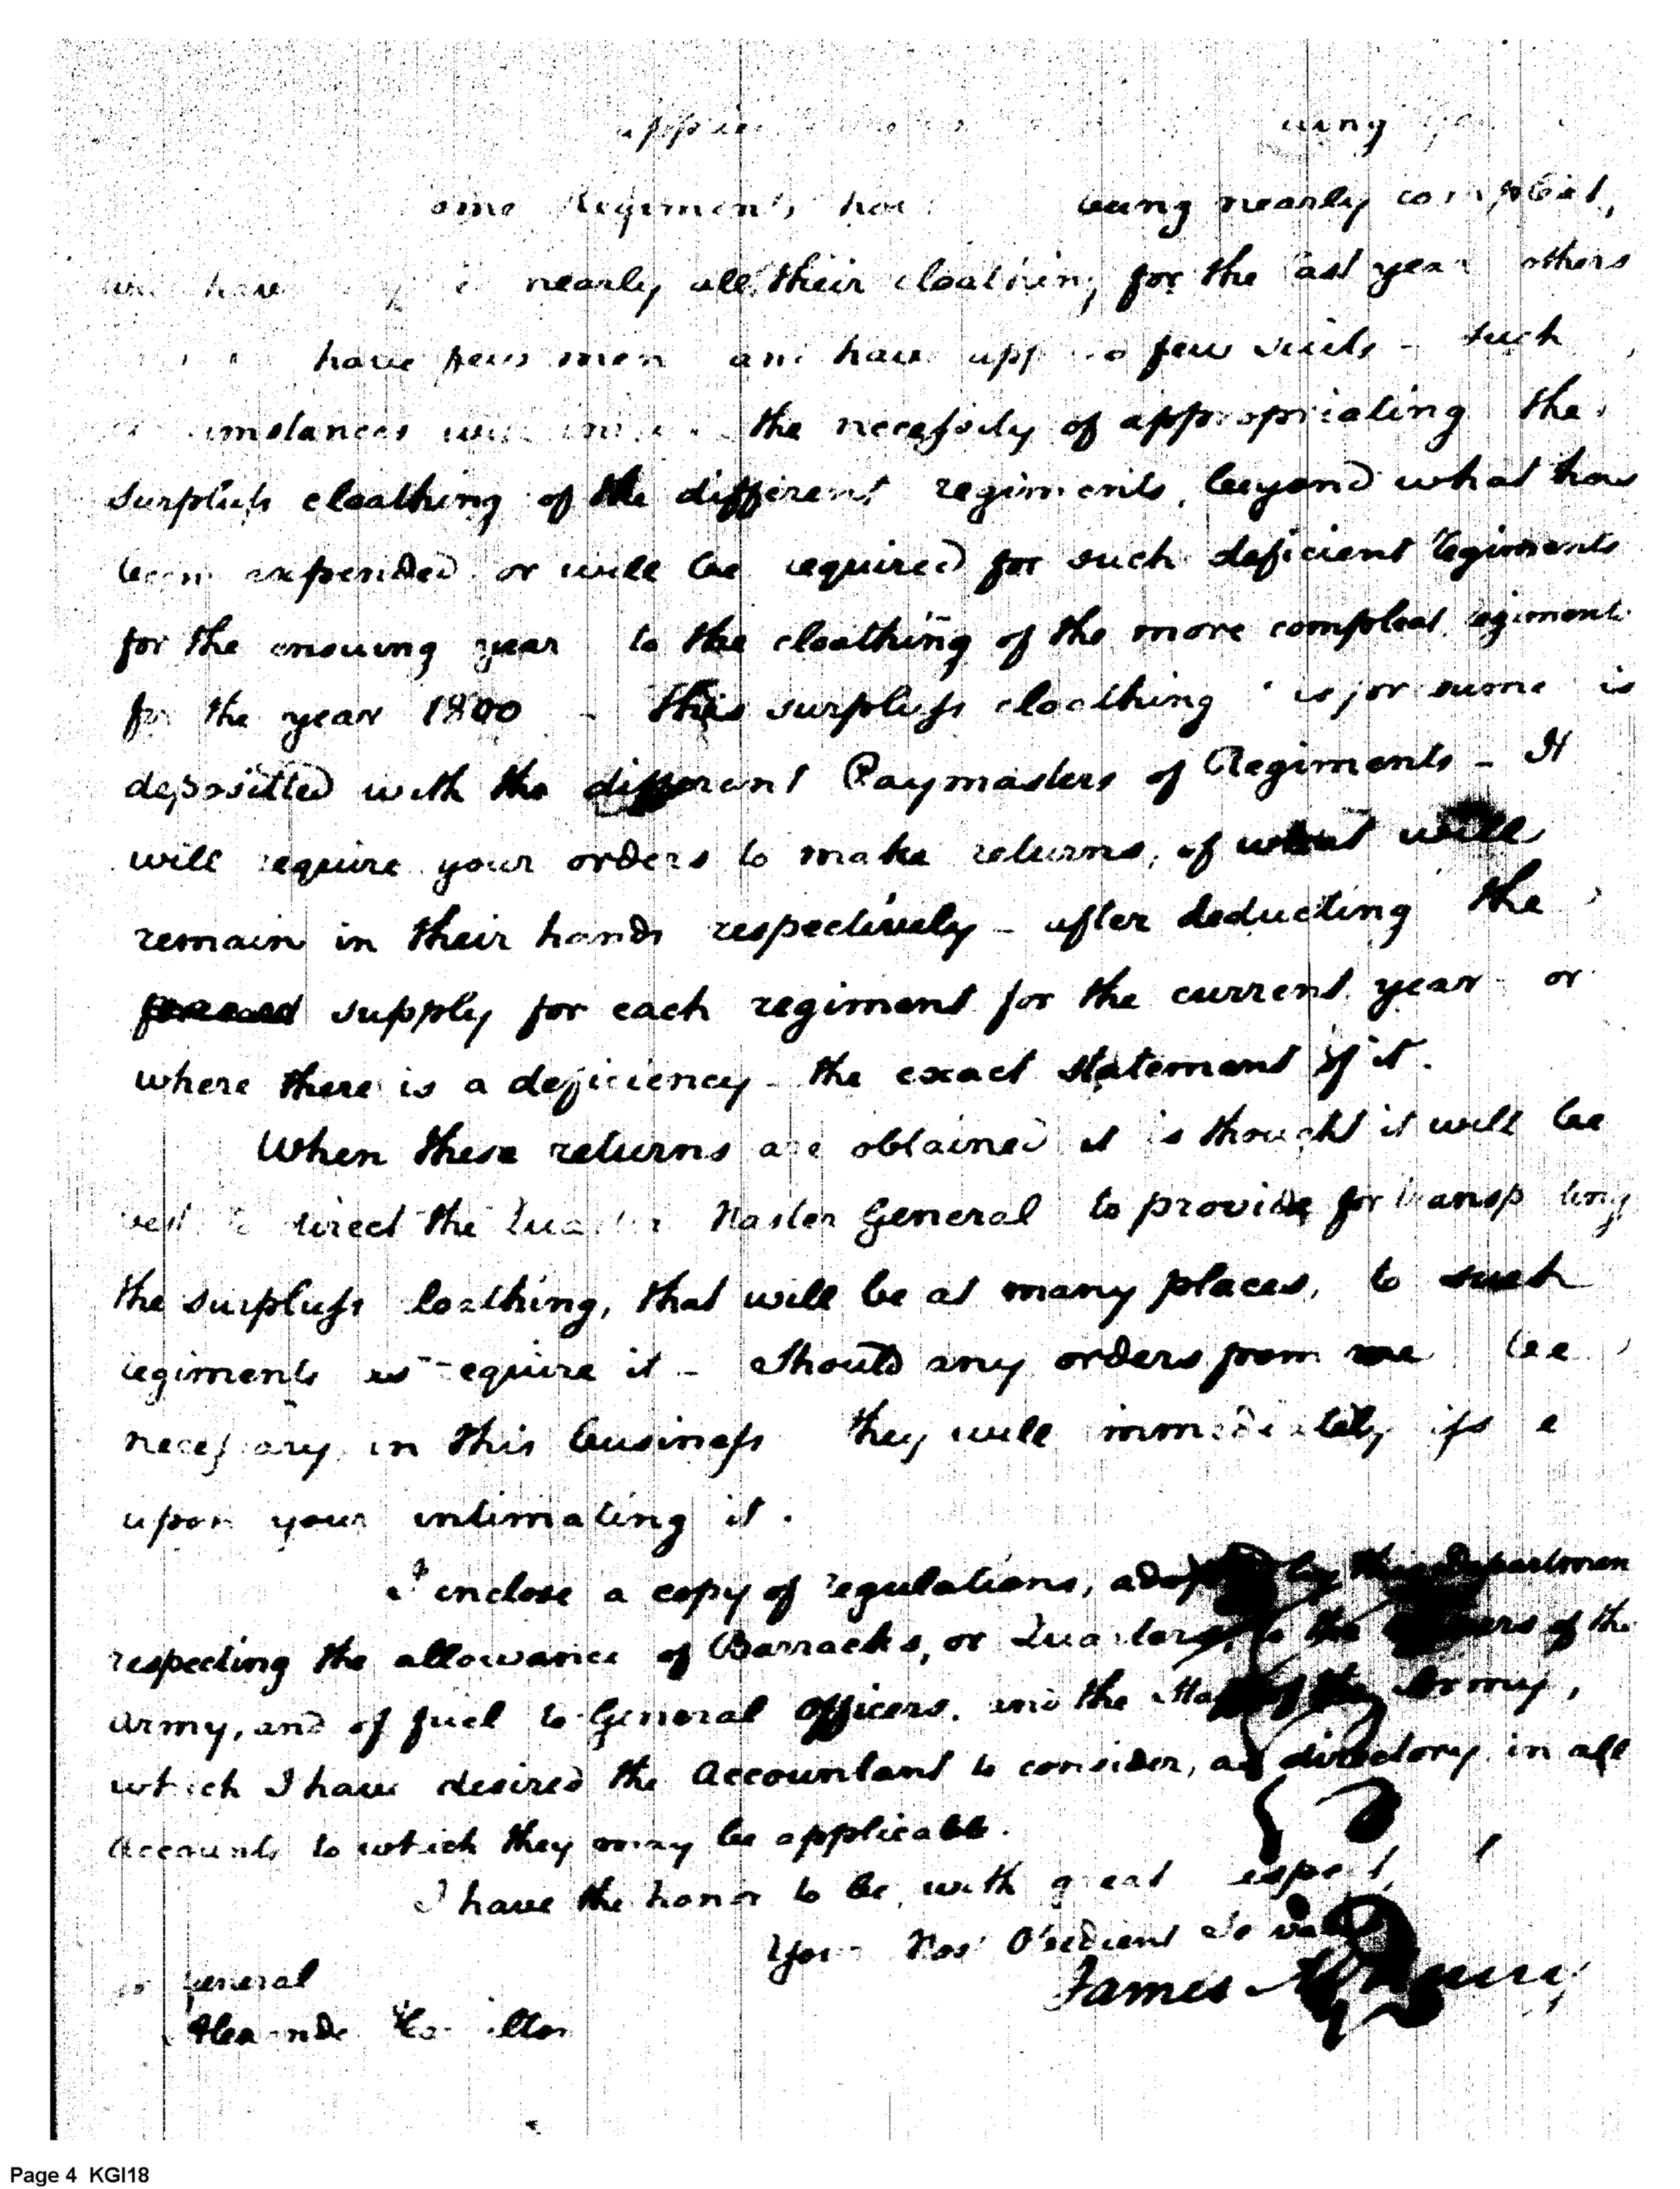 nearly compleat,
nearly all their cloathing for the last year others
have few men and have few suits - such
the necessity of appropriating the
surpluss cloathing of the different regiments, beyond what has
been expended or will be required for such deficient regiments
for the ensuing year to the cloathing of the more compleat regiments
for the year 1800 - This surpluss cloathing is
deposited with the different Paymasters of Regiments - It
will require your orders to make returns, of what will
remain in their hands respectively - after deducting the
supply for each regiment for the current year - or
where there is a deficiency - the exact statement of it.
When these returns are obtained it is thought it will be
best to direct the Quarter Master General to provide for transporting
the surpluss cloathing, that will be at many places, to such
regiments as require it - Should any orders from me be
necessary in this business they will immediately issue
upon your intimating it.
I enclose a copy of regulations, adopted by this Department
respecting the allowance of Barracks, or Quarters, to the Officers of the
Army, and of fuel to General Officers, and the Staff of the Army,
which I have desired the Accountant to consider, as directory in all
Accounts to which they may be applicable.
I have the honor to be, with great respect,
Your Most Obedient Servant
James McHenry
General
Alexander Hamilton
Page 4 KGI18